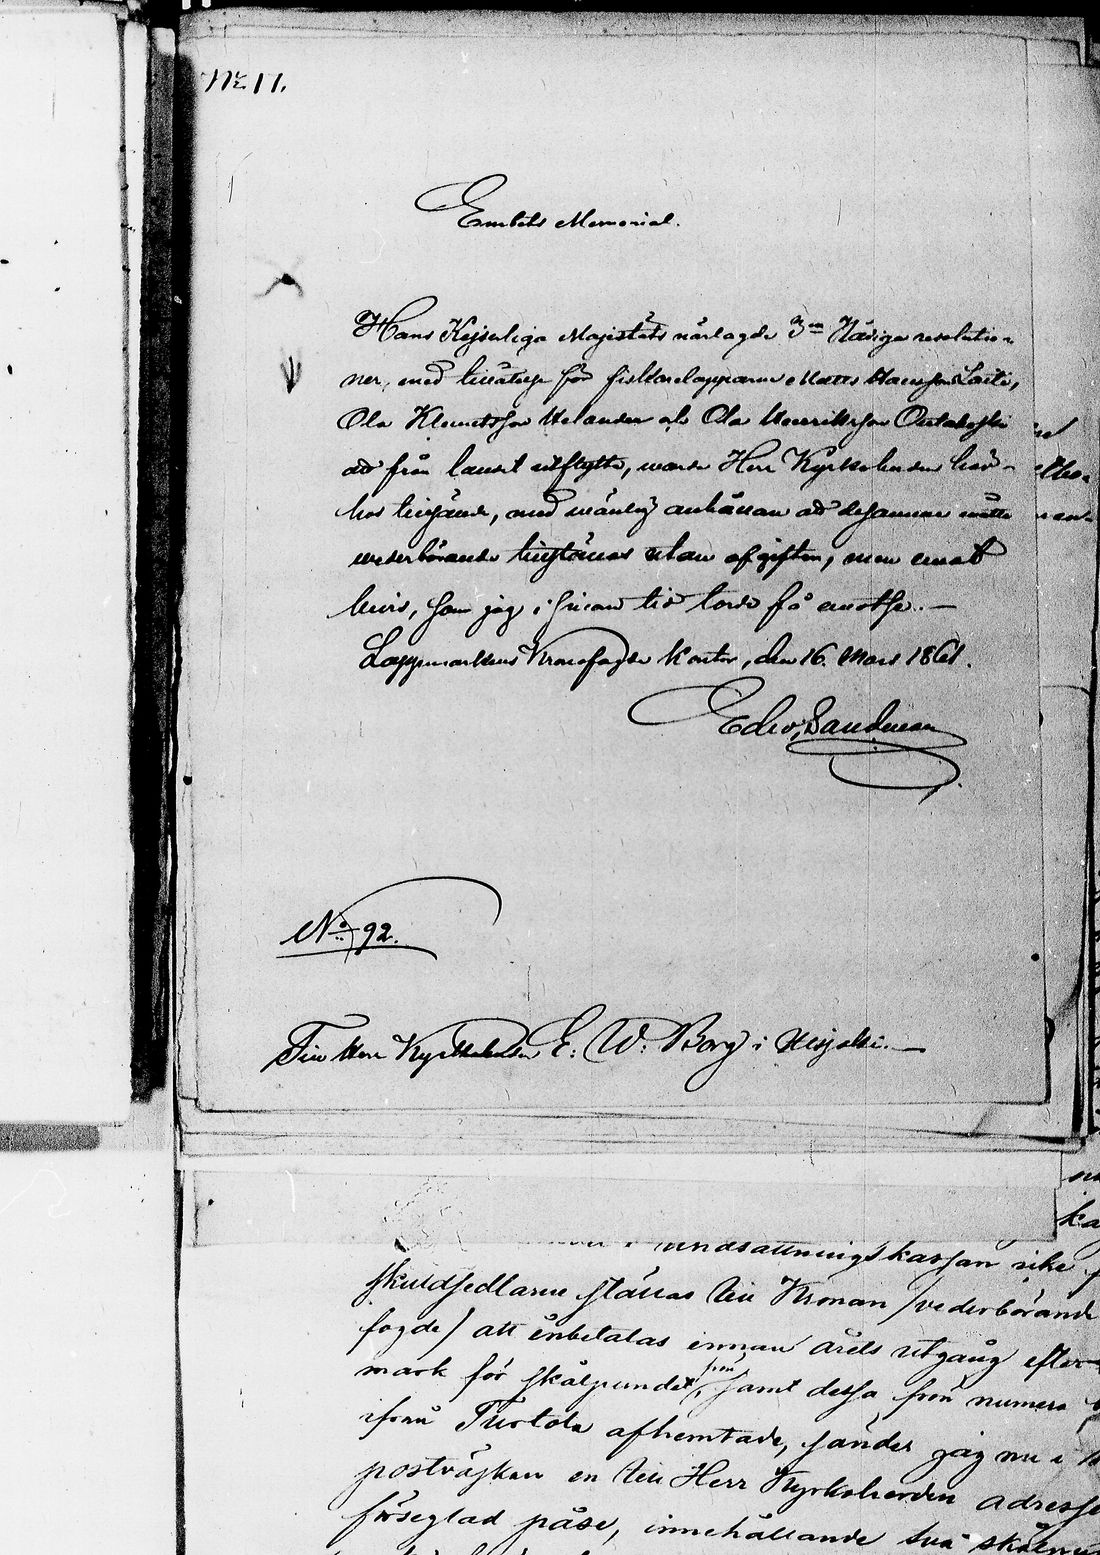 No 11.
Embets Memorial.
Hans Kejserliga Majestäts närlagde 3ne Nådiga resolutio-
ner, med tillåtelse för fiskarelapparne Matts Hansson Laiti,
Ola Klemetsson Helander och Ola Henriksson Outakoski
att från landet utflytta, warda Herr Kyrkoherden här-
hos tillsände, med wänlig anhållan att desamma måtte
wederbörande tillställas utan afgiften, men emot
bewis, som jag i sinom tid torde få emottaga.—
Lappmarkens Kronofogde Kontor, den 16. Mars 1861.
Edv. Sandman
No 92.
Till Herr Kyrkoherden E: W: Borg i Utsjoki.—
undsättningskassan icke
skuldsedlarne ställas till Kronan /vederbörand
fogde/ att inbetalas innan årets utgång efter
mark för skålpundet, samt dessa frön numera
ifrån Turtola afhemtade, sänder jag nu i
postväskan en till Herr Kyrkoherden adresse
förseglad påse, innehållande två skålpu